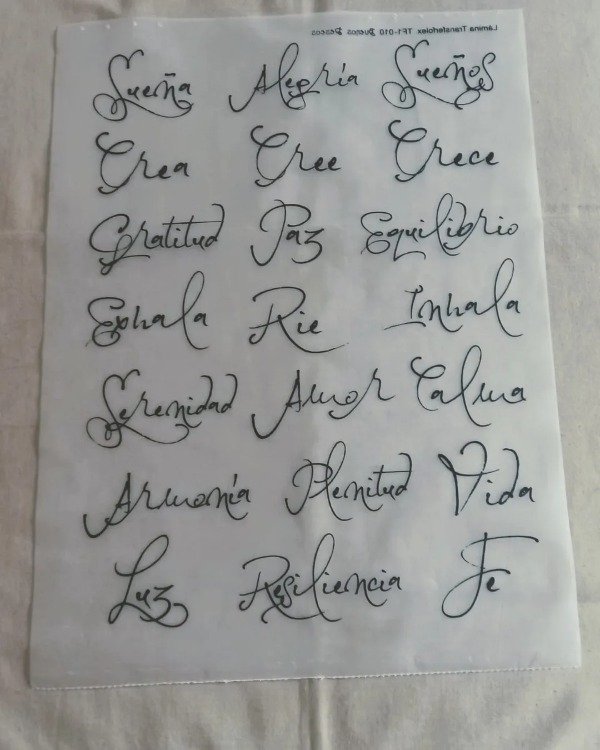 Lámina Transferflex TF1-010 Buenos Deseos
Sueña Alegría Sueños
Crea Cree Crece
Gratitud Paz Equilibrio
Exhala Rie Inhala
Serenidad Amor Calma
Armonía Plenitud Vida
Luz Resiliencia Fe